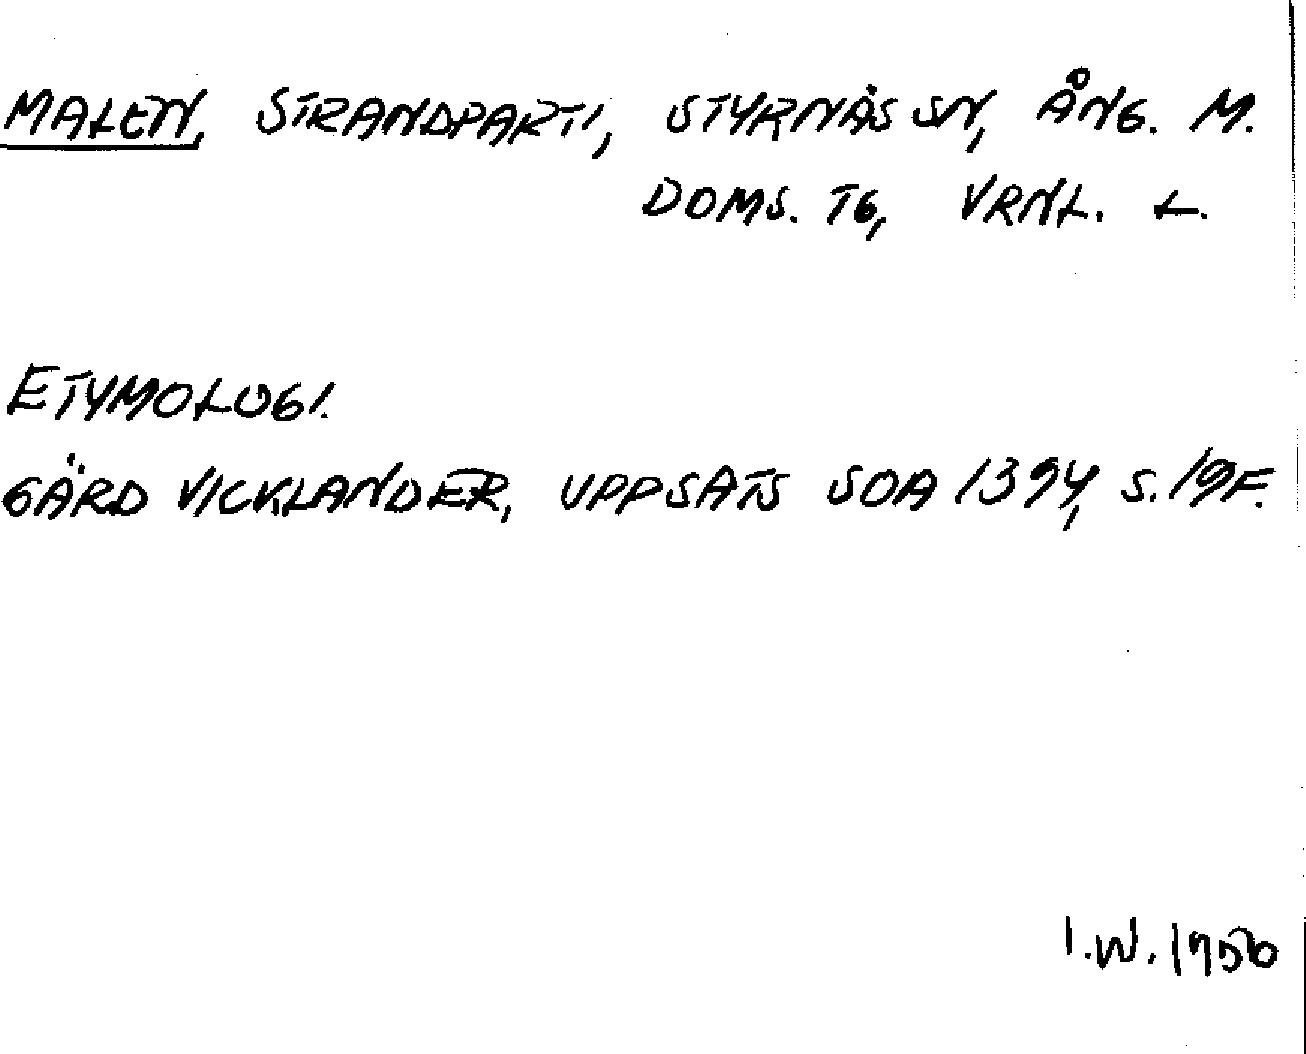 MALEN, STRANDPARTI, STYRNÄS SN, ÅNG. M.
DOMS. TG, VRNL. L.
ETYMOLOGI.
GÄRD VICKLANDER, UPPSATS SOA 1394, S. 19F.
I.W. 1956